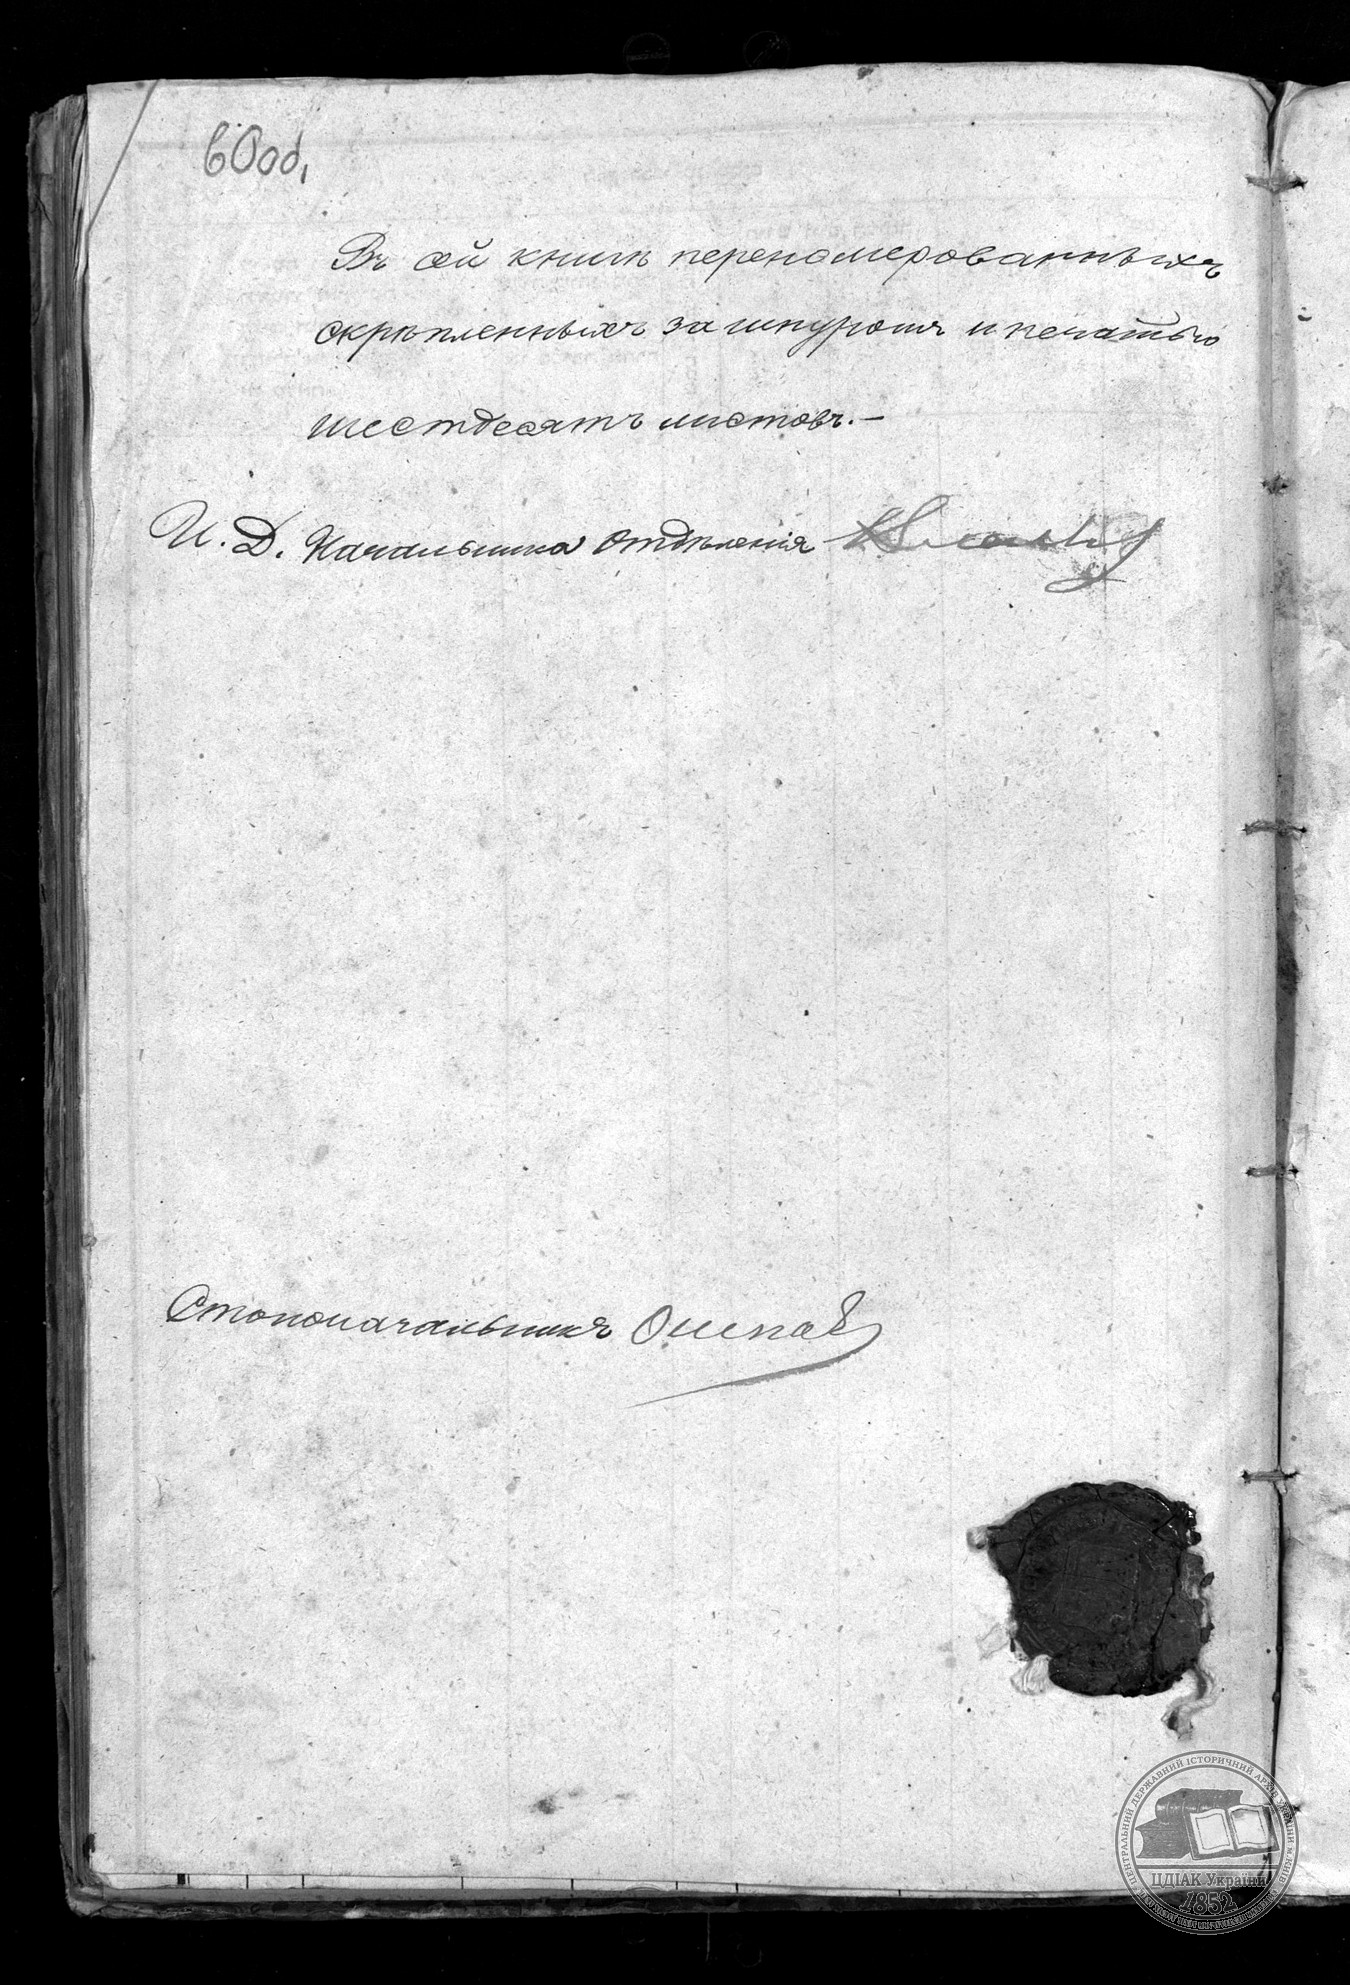 60об.
Въ сей книгѣ переномерованныхъ
скрѣпленныхъ за шнуромъ и печатью
шестдесятъ листовъ.—
И. Д. Начальника Отдѣленія
Столоначальникъ
ЦЕНТРАЛЬНИЙ ДЕРЖАВНИЙ ІСТОРИЧНИЙ АРХІВ УКРАЇНИ М.КИЇВ
ЦДІАК України
1852